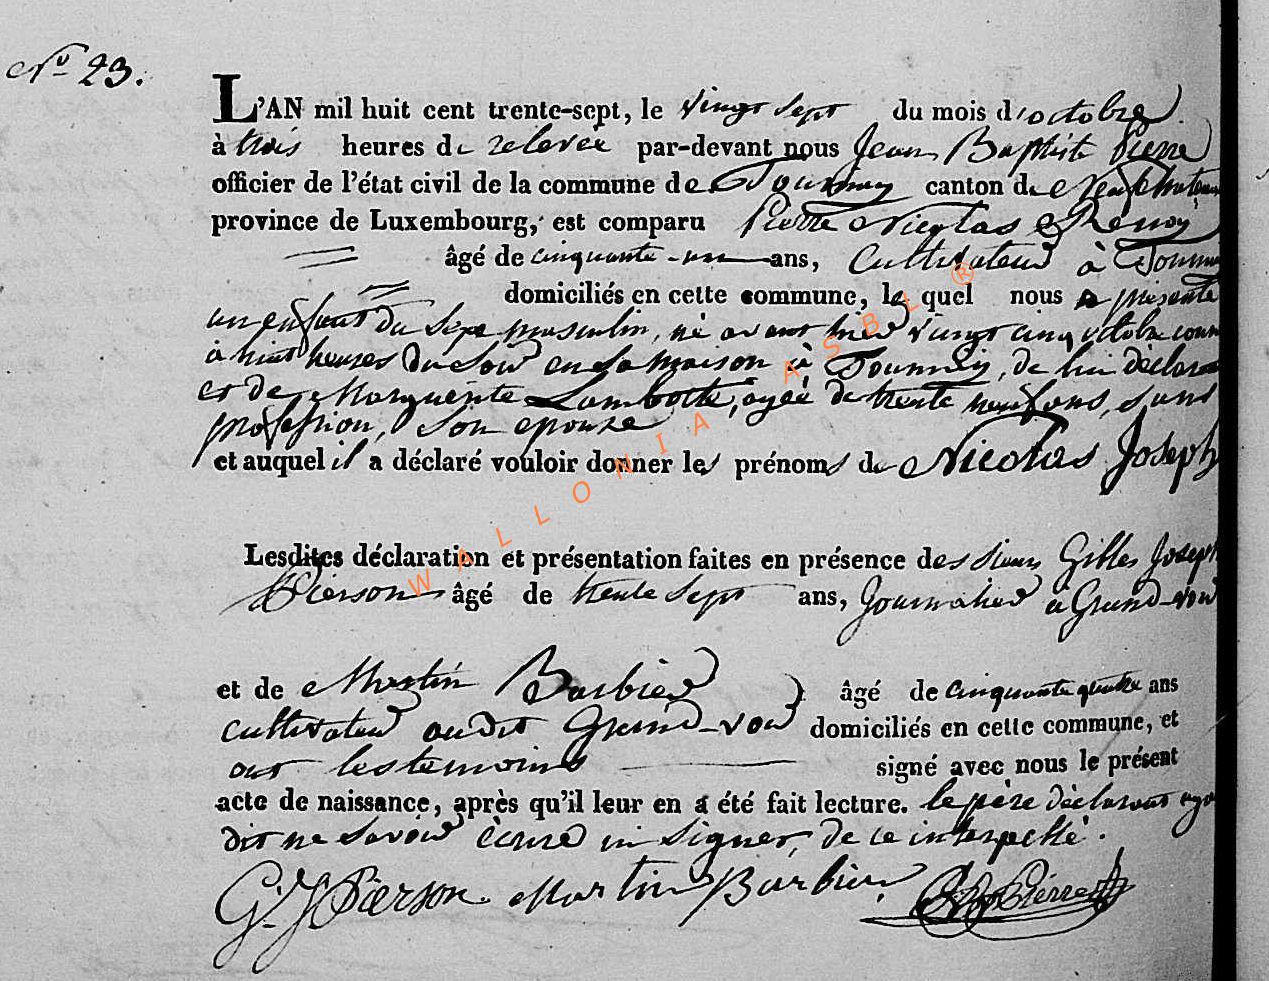 N° 23.
L'AN mil huit cent trente-sept, le vingt sept du mois d'octobre
à trois heures de relevée par-devant nous Jean Baptiste Pierre
officier de l'état civil de la commune de Tournay canton de Neufchateau
province de Luxembourg, est comparu Pierre Nicolas Renoy
âgé de cinquante-un ans, Cultivateur à Tournay
domiciliés en cette commune, le quel nous a présenté
un enfant du sexe masculin, né avant hier vingt cinq octobre cour
à huit heures du soir en sa maison à Tournay, de lui déclarant
et de Marguerite Lambotte, agée de trente neuf ans, sans
profession, son epouse
et auquel il a déclaré vouloir donner les prénoms de Nicolas Joseph
Lesdites déclaration et présentation faites en présence des sieurs Gilles Joseph
Pierson âgé de trente sept ans, Journalier à Grand-voir
et de Martin Barbier âgé de cinquante quatre ans
cultivateur audit Grand-voir domiciliés en cette commune, et
ont les temoins signé avec nous le présent
acte de naissance, après qu'il leur en a été fait lecture. le père déclarant aya
dit ne savoir écrire ni signer, de ce interpellé.
G. J. Pierson. Martin Barbier JB Pierre
WALLONIA ASBL ®